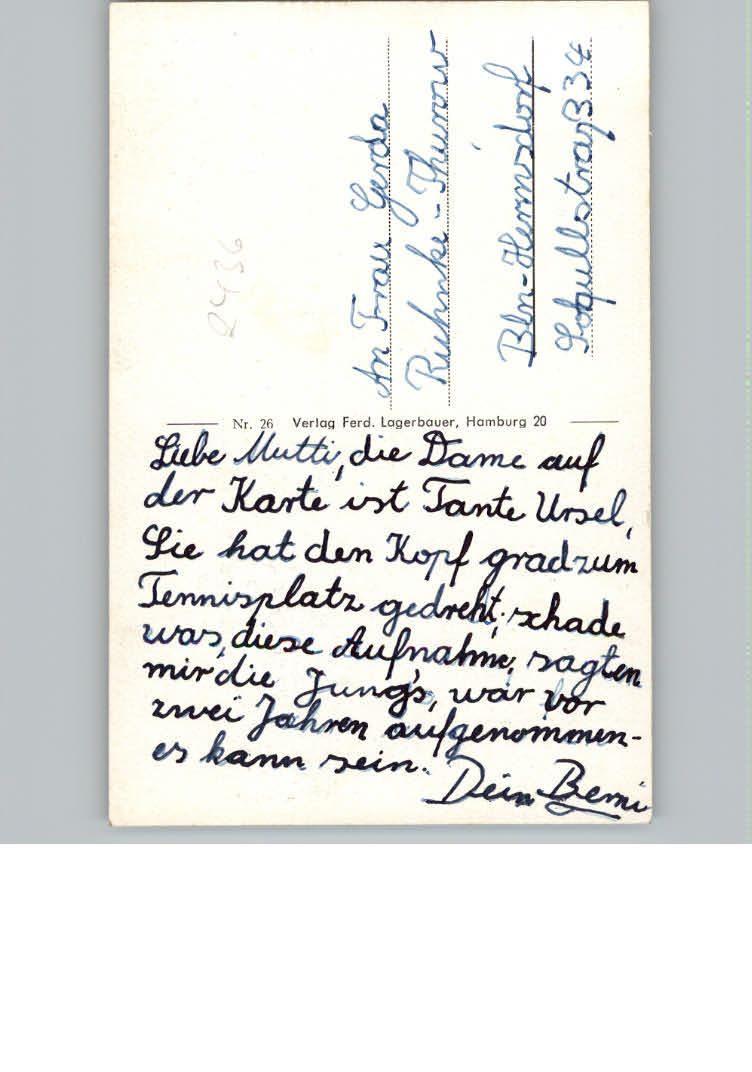 2436
An Frau Gerda
Ruhnke-Thurow
Bln-Hermsdorf
Schulzstraß 34
Nr. 26 Verlag Ferd. Lagerbauer, Hamburg 20
Liebe Mutti, die Dame auf
der Karte ist Tante Ursel,
Sie hat den Kopf grad zum
Tennisplatz gedreht, schade
was, diese Aufnahme, sagten
mir die Jung's, wär vor
zwei Jahren aufgenommen-
es kann sein.
Dein Berni